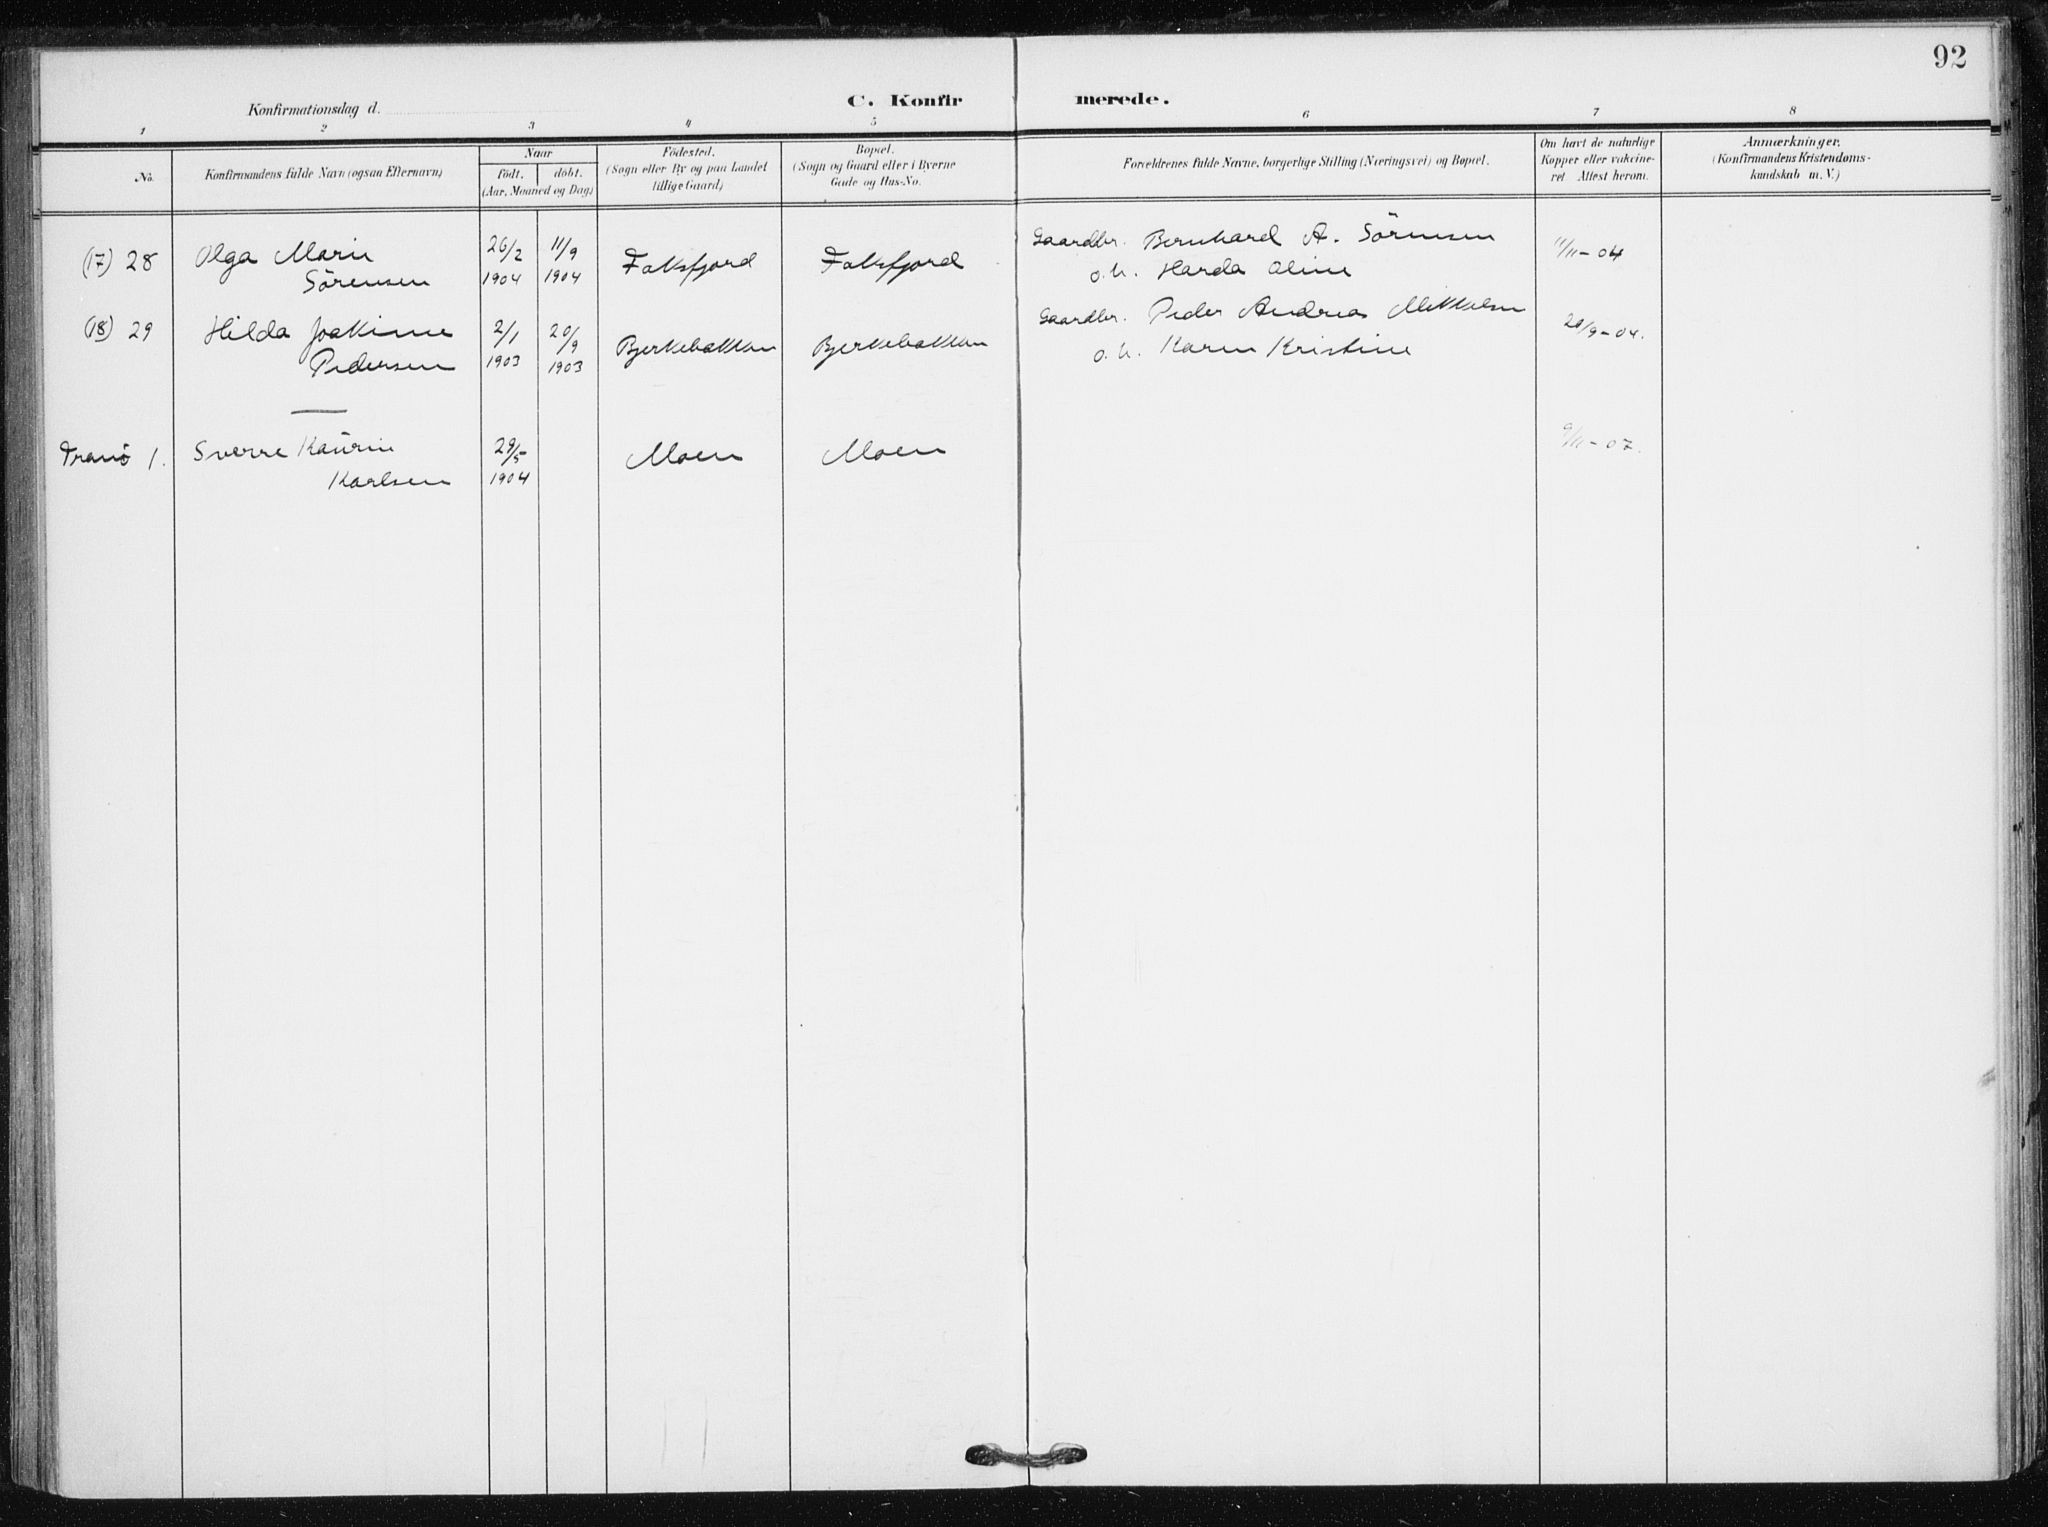 92
Konfirmationsdag d.
C. Konfirmerede.
1 2 3 4 5 6 7 8
No.
Konfirmandens fulde Navn (ogsaa Efternavn)
Naar
födt. döbt.
(Aar, Maaned og Dag)
Födested.
(Sogn eller By og paa Landet
tillige Gaard)
Bopæl.
(Sogn og Gaard eller i Byerne
Gade og Hus-No.
Forældrenes fulde Navne, borgerlige Stilling (Næringsvei) og Bopæl.
Om havt de naturlige
Kopper eller vakcine-
ret Attest herom.
Anmærkninger.
(Konfirmandens Kristendoms-
kundskab m. V.)
(17) 28 Olga Marie 26/2 11/9 Gaardbr. Bernhard A. Sörensen 11/11-04
Sörensen 1904 1904 Faksfjord Faksfjord o.h. Harda Oline
(18) 29 Hilda Joakime 2/1 20/9 Gaardbr. Peder Andreas Mikkelsen 20/9-04.
Pedersen 1903 1903 Bjerkebakken Bjerkebakken o.h. Karen Kristine
Tranö 1. Sverre Kaurin 29/5 Moen Moen 9/11-07.
Karlsen 1904